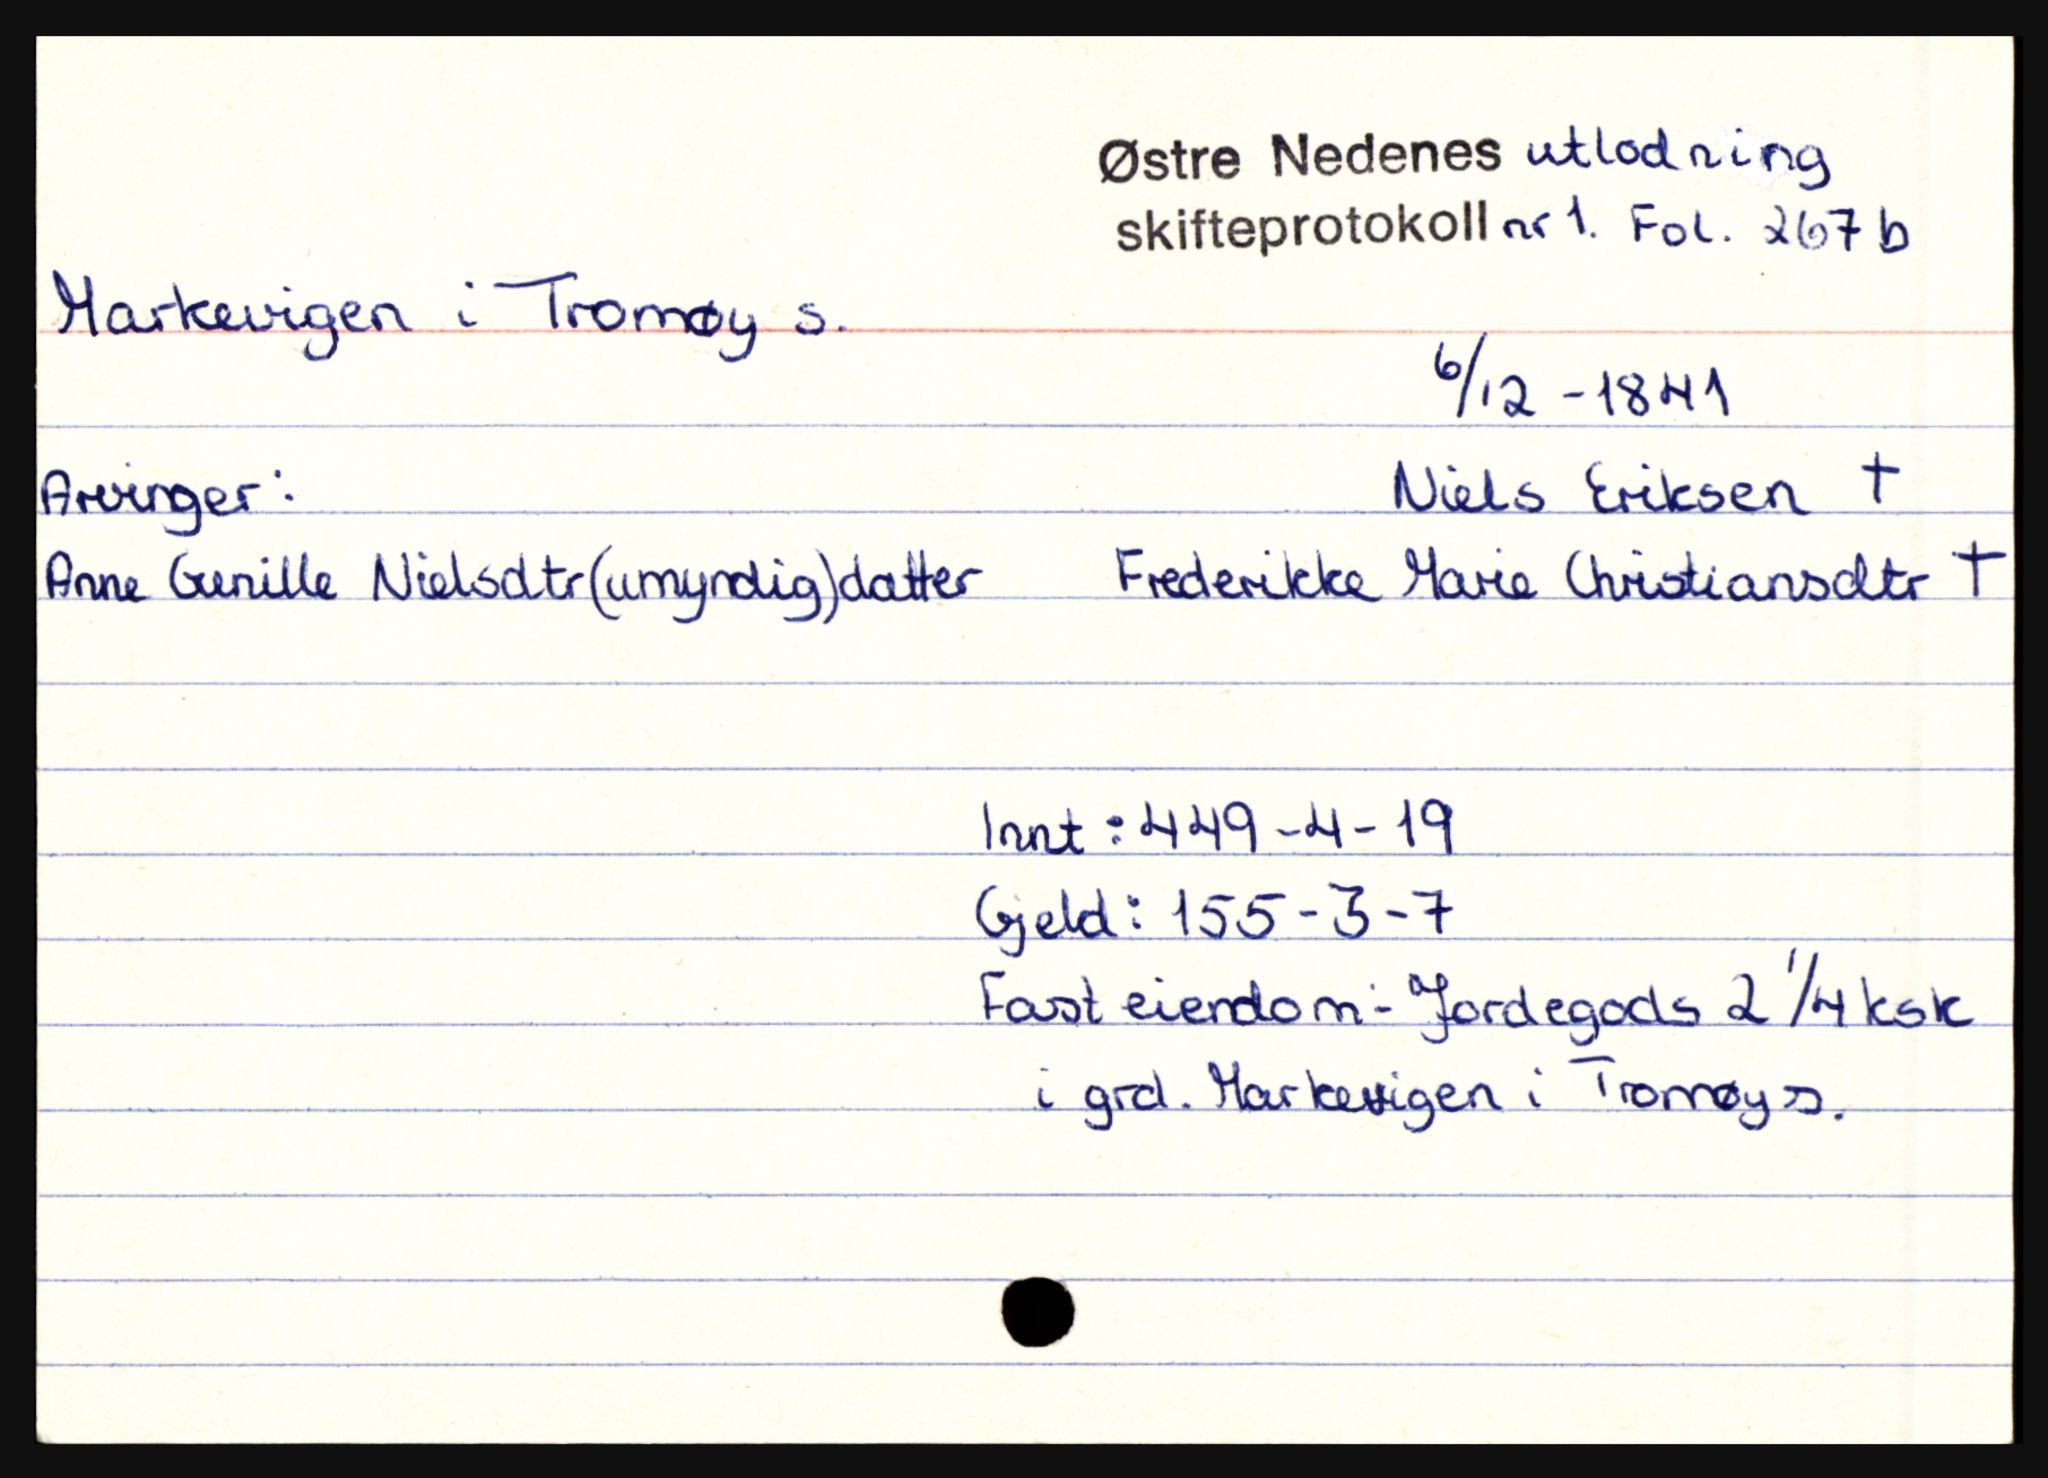 Østre Nedenes utlodning
skifteprotokoll nr 1. Fol. 267b
Markevigen i Tromøy s.
6/12 - 1841
Arvinger: Niels Eriksen †
Anne Gunille Nielsdtr (umyndig) datter Frederikke Marie Christiansdtr †
Innt: 449-4-19
Gjeld: 155-3-7
Fast eiendom: Jordegods 2 1/4 ksk
i grd. Markevigen i Tromøy s.